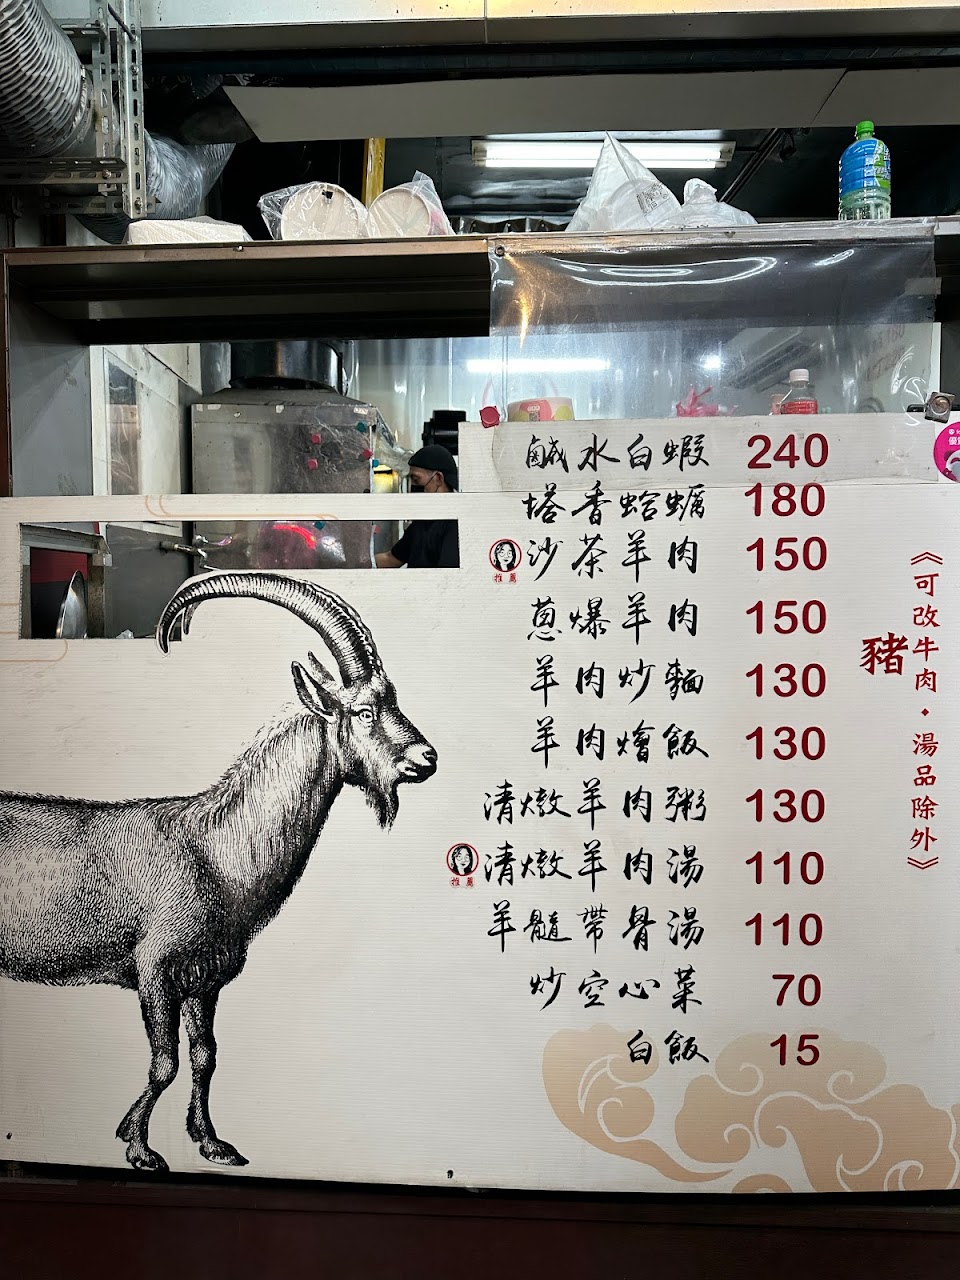 鹹水白蝦 240
塔香蛤蠣 180
推薦 沙茶羊肉 150
蔥爆羊肉 150
羊肉炒麵 130
羊肉燴飯 130
清燉羊肉粥 130
推薦 清燉羊肉湯 110
羊髓帶骨湯 110
炒空心菜 70
白飯 15
《可改牛肉・湯品除外》
豬